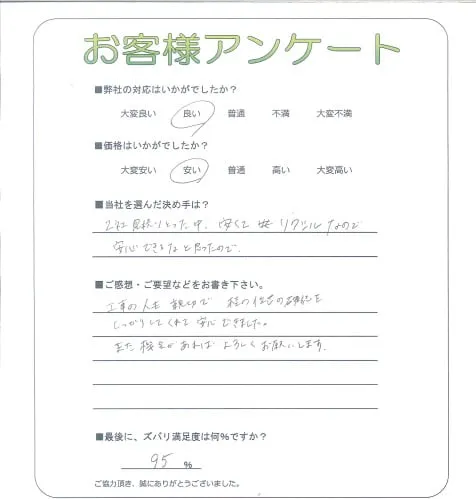 お客様アンケート
■弊社の対応はいかがでしたか？
大変良い 良い 普通 不満 大変不満
■価格はいかがでしたか？
大変安い 安い 普通 高い 大変高い
■当社を選んだ決め手は？
2社見積りとった中、安くて リグツルなので
安心できるなと思ったので。
■ご感想・ご要望などをお書き下さい。
工事の人も親切で 他の住宅の確認を
しっかりしてくれて安心できました。
また機会があれば よろしくお願いします。
■最後に、ズバリ満足度は何%ですか？
95 %
ご協力頂き、誠にありがとうございました。